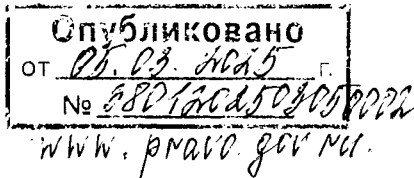 Опубликовано
от 05.03.2025 г.
№ 3801202503050002
www.pravo.gov.ru.